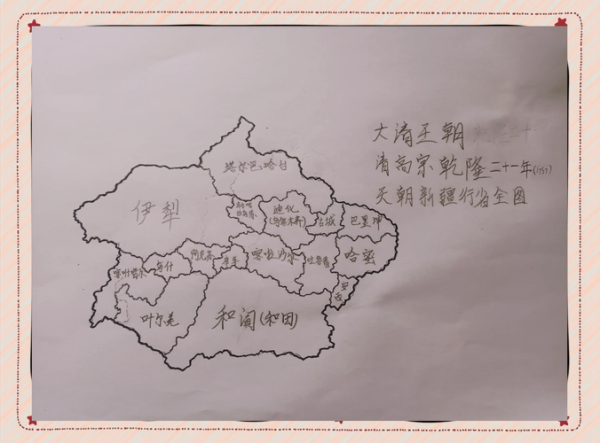 大清王朝
清高宗乾隆二十一年(1757)
天朝新疆行省全图
塔尔巴哈台
伊犁
迪化
(乌鲁木齐)
古城
巴里坤
喀喇沙尔
吐鲁番
哈密
阿克苏
库车
乌什
喀什噶尔
叶尔羌
和阗(和田)